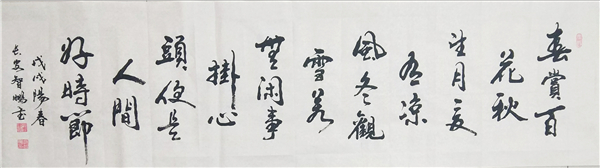 春賞百
花秋
望月夏
有涼
風冬觀
雪若
無闲事
掛心
頭便是
人間
好時節
戊戌陽春
長安智鵬書